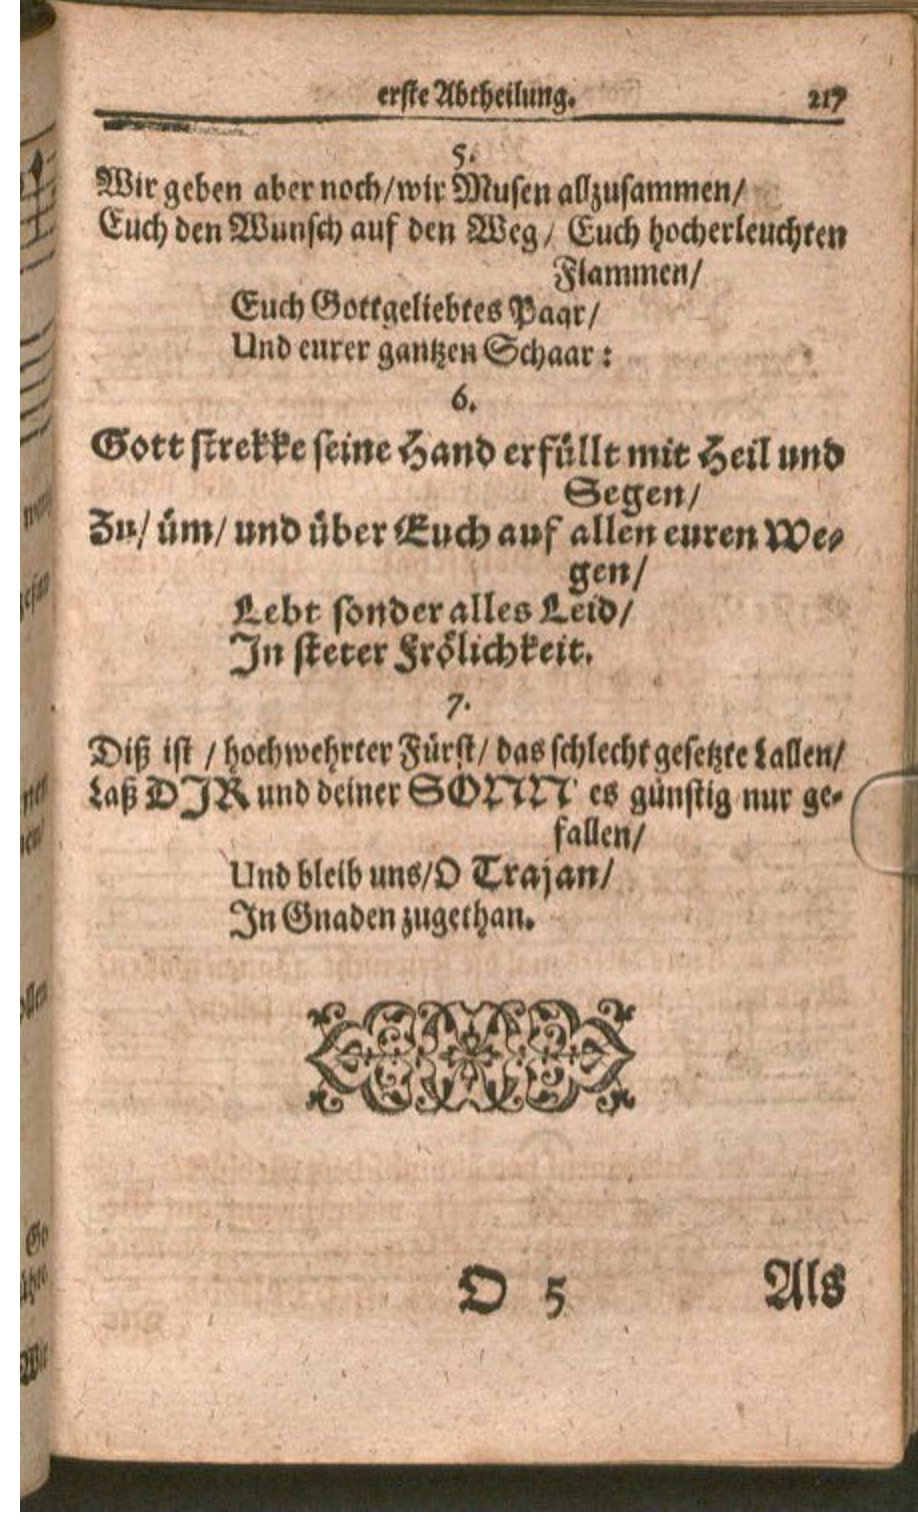 erste Abtheilung. 217
5.
Wir geben aber noch/wir Musen allzusammen/
Euch den Wunsch auf den Weg/ Euch hocherleuchten
Flammen/
Euch Gottgeliebtes Paar/
Und eurer gantzen Schaar:
6.
Gott strekke seine Hand erfüllt mit Heil und
Segen/
Zu/ üm/ und über Euch auf allen euren We-
gen/
Lebt sonder alles Leid/
In steter Frölichkeit.
7.
Diß ist / hochwehrter Fürst/ das schlecht gesetzte Lallen/
Laß DIR und deiner SONN' es günstig nur ge-
fallen/
Und bleib uns/O Trajan/
In Gnaden zugethan.
O 5 Als